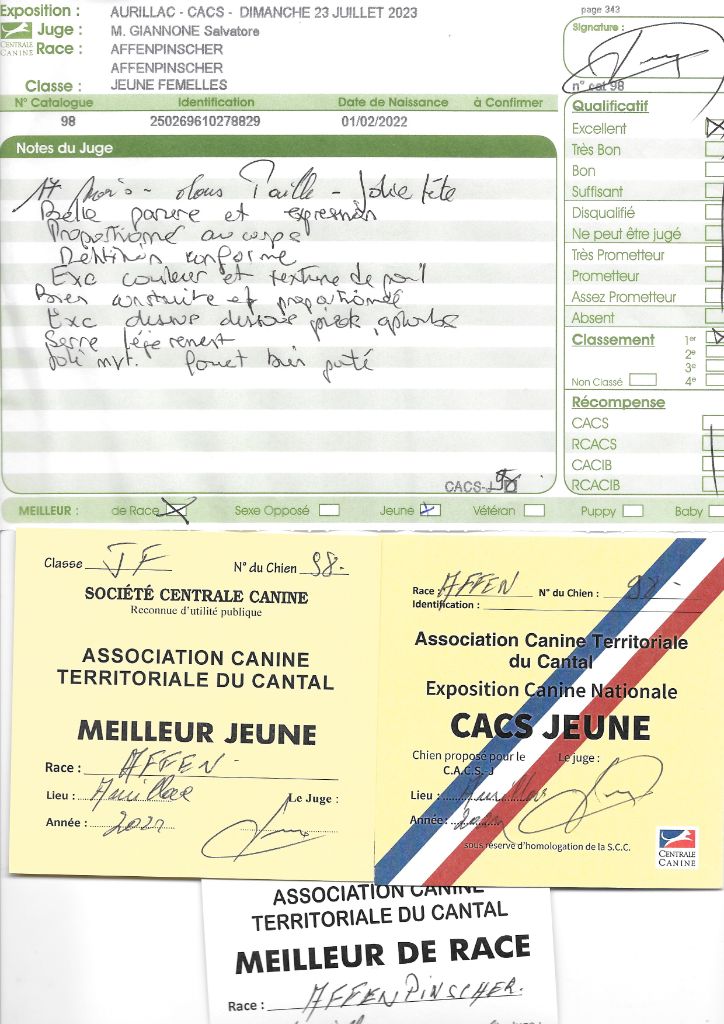 Exposition : AURILLAC - CACS - DIMANCHE 23 JUILLET 2023
page 343
Juge : M. GIANNONE Salvatore
Signature :
CENTRALE CANINE
Race : AFFENPINSCHER
AFFENPINSCHER
Classe : JEUNE FEMELLES
n° cat 98
N° Catalogue Identification Date de Naissance à Confirmer
98 250269610278829 01/02/2022
Notes du Juge
17 mois - Taille - Jolie tête
Belle parure et expression
Proportionné au corps
Dentition conforme
Exc couleur et texture de poil
Bien construite et proportionné
Exc dessus dessous
Serre légèrement
Joli mvt. fouet bien porté
CACS-J
Qualificatif
Excellent
Très Bon
Bon
Suffisant
Disqualifié
Ne peut être jugé
Très Prometteur
Prometteur
Assez Prometteur
Absent
Classement 1er
2e
3e
Non Classé 4e
Récompense
CACS
RCACS
CACIB
RCACIB
MEILLEUR : de Race Sexe Opposé Jeune Vétéran Puppy Baby
Classe JF N° du Chien 98-
SOCIÉTÉ CENTRALE CANINE
Reconnue d'utilité publique
ASSOCIATION CANINE
TERRITORIALE DU CANTAL
MEILLEUR JEUNE
Race : AFFEN-
Lieu : Aurillac Le Juge :
Année :
Race : AFFEN N° du Chien : 98-
Identification :
Association Canine Territoriale
du Cantal
Exposition Canine Nationale
CACS JEUNE
Chien proposé pour le Le juge :
C.A.C.S.-J
Lieu : Aurillac
Année :
sous réserve d'homologation de la S.C.C.
CENTRALE
CANINE
ASSOCIATION CANINE
TERRITORIALE DU CANTAL
MEILLEUR DE RACE
Race : AFFENPINSCHER.